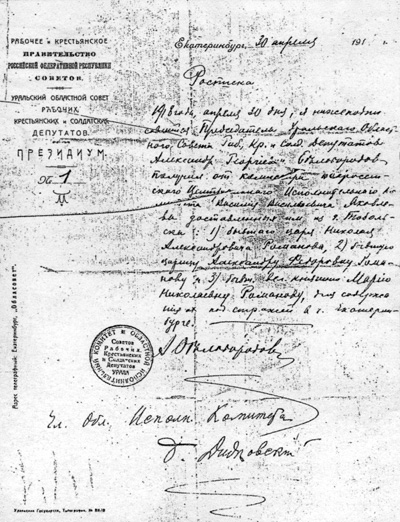 РАБОЧЕЕ и КРЕСТЬЯНСКОЕ
ПРАВИТЕЛЬСТВО
РОССИЙСКОЙ ФЕДЕРАТИВНОЙ РЕСПУБЛИКИ
СОВЕТОВ.
УРАЛЬСКИЙ ОБЛАСТНОЙ СОВЕТ
РАБОЧИХ
КРЕСТЬЯНСКИХ и СОЛДАТСКИХ
ДЕПУТАТОВ.
ПРЕЗИДИУМ.
№ 1
Екатеринбург. 30 апреля 191 г.
Расписка
1918 года, апреля 30 дня, я нижеподпи
савшийся Председатель Уральского Област
ного Совета Раб. Кр. и Солд. Депутатов
Александр Георгиевич Белобородов
получил от комиссара Всеросс
ийского Центрального Исполнительного Ко
митета Василия Васильевича Яковле
ва доставленных им из г. Тоболь
ска: 1) бывшего царя Николая
Александровича Романова, 2) бывшую
царицу Александру Федоровну Рома
нову и 3) бывш. вел. княжну Марию
Николаевну Романову, для содержа
ния их под стражей в г. Екатерин
бурге.
А. Белобородов
Чл. Обл. Исполн. Комитета
Б. Дидковский
ОБЛАСТНОЙ ИСПОЛНИТЕЛЬНЫЙ КОМИТЕТ
Советов
Рабочих,
Крестьянских
и Солдатских
Депутатов
УРАЛА
Адрес телеграфный: Екатеринбург, "Облсовет".